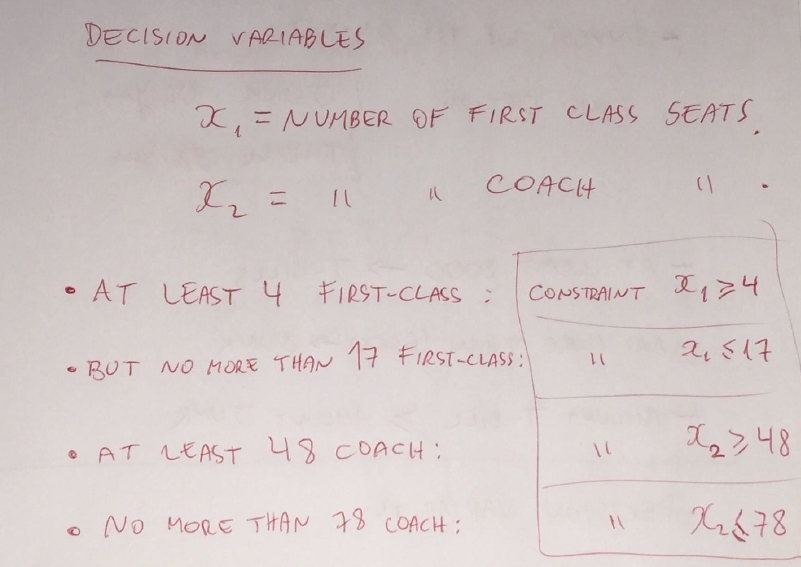 DECISION VARIABLES
x₁ = NUMBER OF FIRST CLASS SEATS.
x₂ = " " COACH " .
• AT LEAST 4 FIRST-CLASS : CONSTRAINT x₁ ⩾ 4
• BUT NO MORE THAN 17 FIRST-CLASS: " x₁ ≤ 17
• AT LEAST 48 COACH: " x₂ ⩾ 48
• NO MORE THAN 78 COACH: " x₂ ≤ 78